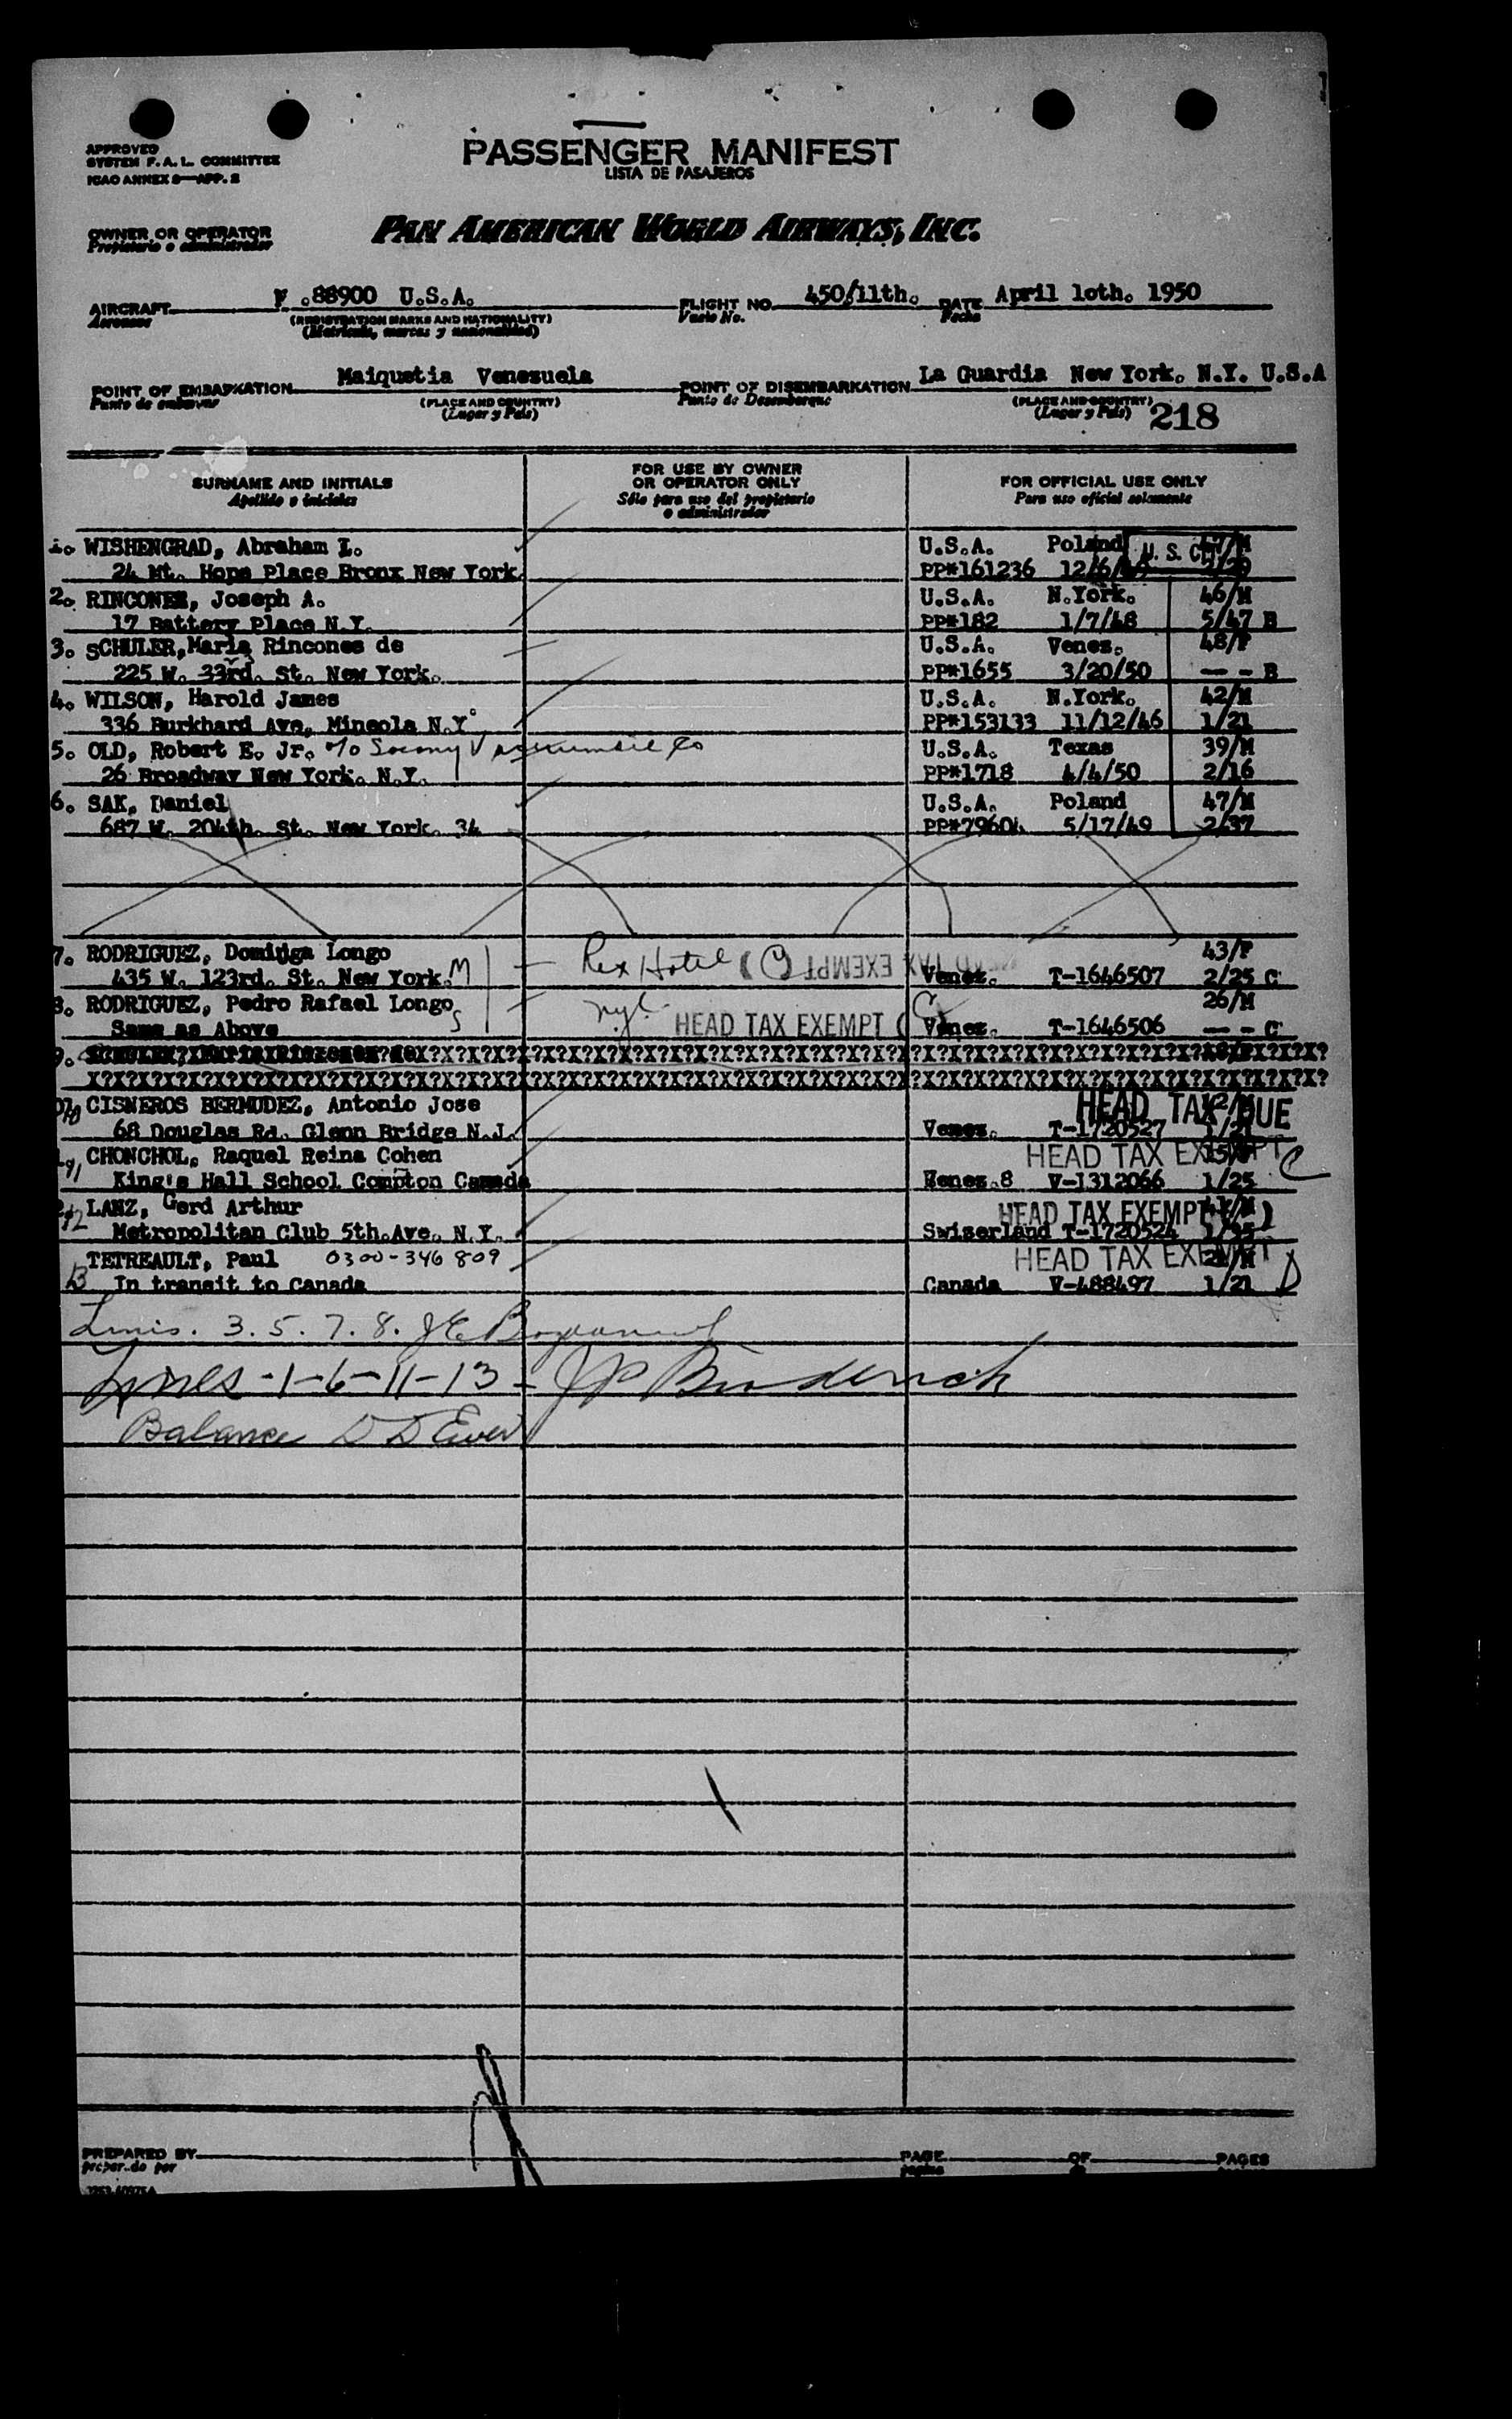 APPROVED
SYSTEM F.A.L. COMMITTEE
ICAO ANNEX 9—APP. 2
PASSENGER MANIFEST
LISTA DE PASAJEROS
OWNER OR OPERATOR
Propietario o administrador
PAN AMERICAN WORLD AIRWAYS, INC.
AIRCRAFT .88900 U.S.A. FLIGHT NO. 450/11th. DATE April 10th. 1950
Aeronave (REGISTRATION MARKS AND NATIONALITY) Vuelo No. Fecha
(Matricula, marcas y nacionalidad)
POINT OF EMBARKATION Maiquetia Venezuela POINT OF DISEMBARKATION La Guardia New York. N.Y. U.S.A
Punto de embarque (PLACE AND COUNTRY) Punto de Desembarque (PLACE AND COUNTRY)
(Lugar y País) (Lugar y País) 218
SURNAME AND INITIALS FOR USE BY OWNER OR OPERATOR ONLY FOR OFFICIAL USE ONLY
Apellido e iniciales Sólo para uso del propietario o administrador Para uso oficial solamente
1. WISHENGRAD, Abraham L. U.S.A. Poland U. S. CIT
24 Mt. Hope Place Bronx New York PP#161236
2. RINCONES, Joseph A. U.S.A. N.York. 46/M
17 Battery Place N.Y. PP#182 1/7/48 5/47 B
3. SCHULER, Maria Rincones de U.S.A. Venez. 48/F
225 W. 33rd. St. New York. PP#1655 3/20/50 — - B
4. WILSON, Harold James U.S.A. N.York. 42/M
336 Burkhard Ave, Mineola N.Y. PP#153133 11/12/46 1/21
5. OLD, Robert E. Jr. c/o Socony Vacuum Co U.S.A. Texas 39/M
26 Broadway New York. N.Y. PP#1718 4/4/50 2/16
6. SAK, Daniel U.S.A. Poland 47/M
687 W. 204th. St. New York. 34 PP#79604 5/17/49 2/37
7. RODRIGUEZ, Dominga Longo 43/F
435 W. 123rd. St. New York. M Rex Hotel (C) HEAD TAX EXEMPT Venez. T-1646507 2/25 C
8. RODRIGUEZ, Pedro Rafael Longo 26/M
Same as Above S nyc HEAD TAX EXEMPT ( C Venez. T-1646506 — - C
9.
CISNEROS BERMUDEZ, Antonio Jose HEAD TAX DUE
68 Douglas Rd. Glenn Bridge N.J. Venez. T-1720527
CHONCHOL, Raquel Reina Cohen HEAD TAX EXEMPT C
King's Hall School Compton Canada Venez.8 V-1312066 1/25
12 LANZ, Gerd Arthur HEAD TAX EXEMPT
Metropolitan Club 5th.Ave. N.Y. Swiserland T-1720524
TETREAULT, Paul 0300-346809 HEAD TAX EXEMPT D
13 In transit to Canada Canada V-488497 1/21
Lines. 3. 5. 7. 8.
Lines -1-6-11-13- JP Broderick
Balance
PREPARED BY PAGE OF PAGES
preparado por